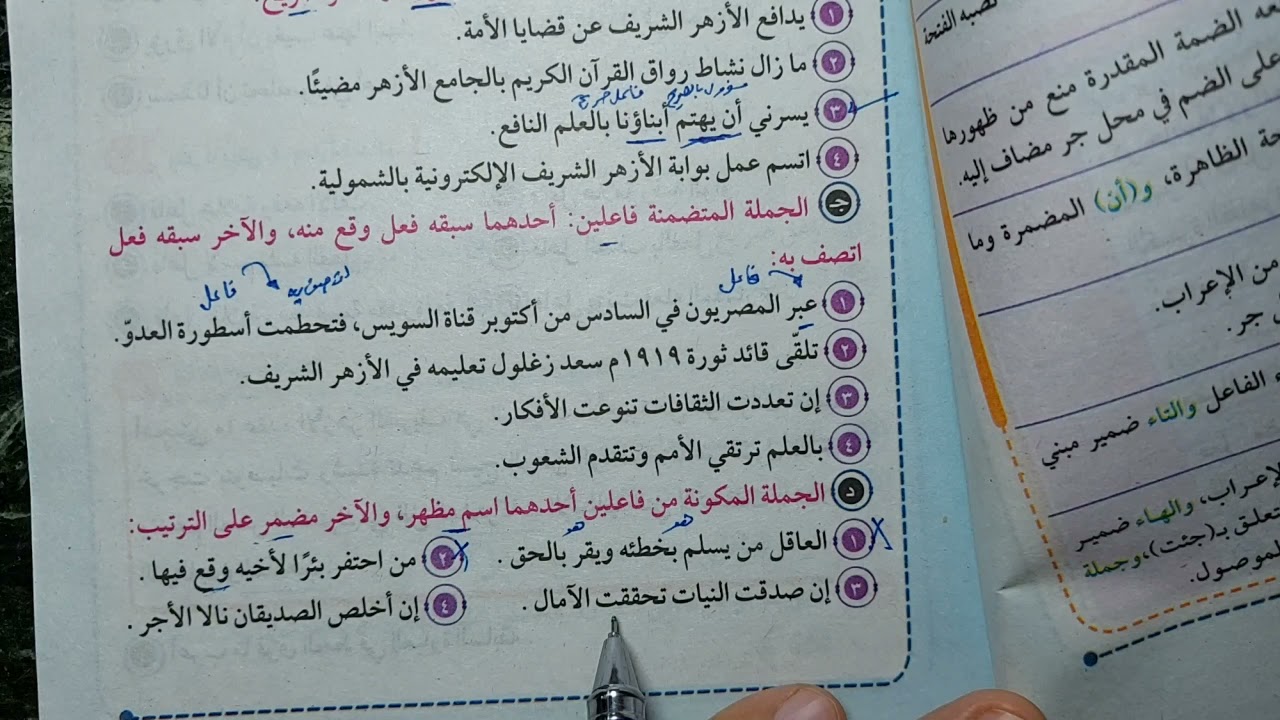 ١ يدافع الأزهر الشريف عن قضايا الأمة.
٢ ما زال نشاط رواق القرآن الكريم بالجامع الأزهر مضيئًا.
مؤول بالصريح فاعل صريح
٣ يسرني أن يهتم أبناؤنا بالعلم النافع.
٤ اتسم عمل بوابة الأزهر الشريف الإلكترونية بالشمولية.
جـ الجملة المتضمنة فاعلين: أحدهما سبقه فعل وقع منه، والآخر سبقه فعل
اتصف به:
فاعل اتصف به فاعل
١ عبر المصريون في السادس من أكتوبر قناة السويس، فتحطمت أسطورة العدوّ.
٢ تلقّى قائد ثورة ١٩١٩م سعد زغلول تعليمه في الأزهر الشريف.
٣ إن تعددت الثقافات تنوعت الأفكار.
٤ بالعلم ترتقي الأمم وتتقدم الشعوب.
د الجملة المكونة من فاعلين أحدهما اسم مظهر، والآخر مضمر على الترتيب:
هو هو
١ العاقل من يسلم بخطئه ويقر بالحق .
٢ من احتفر بئرًا لأخيه وقع فيها .
٣ إن صدقت النيات تحققت الآمال .
٤ إن أخلص الصديقان نالا الأجر .
نصبه الفتحة
الضمة المقدرة منع من ظهورها
على الضم في محل جر مضاف إليه.
الظاهرة، و(أن) المضمرة وما
من الإعراب.
جر.
الفاعل والتاء ضمير مبني
والهاء ضمير
بـ(جئت)، وجملة
الموصول.